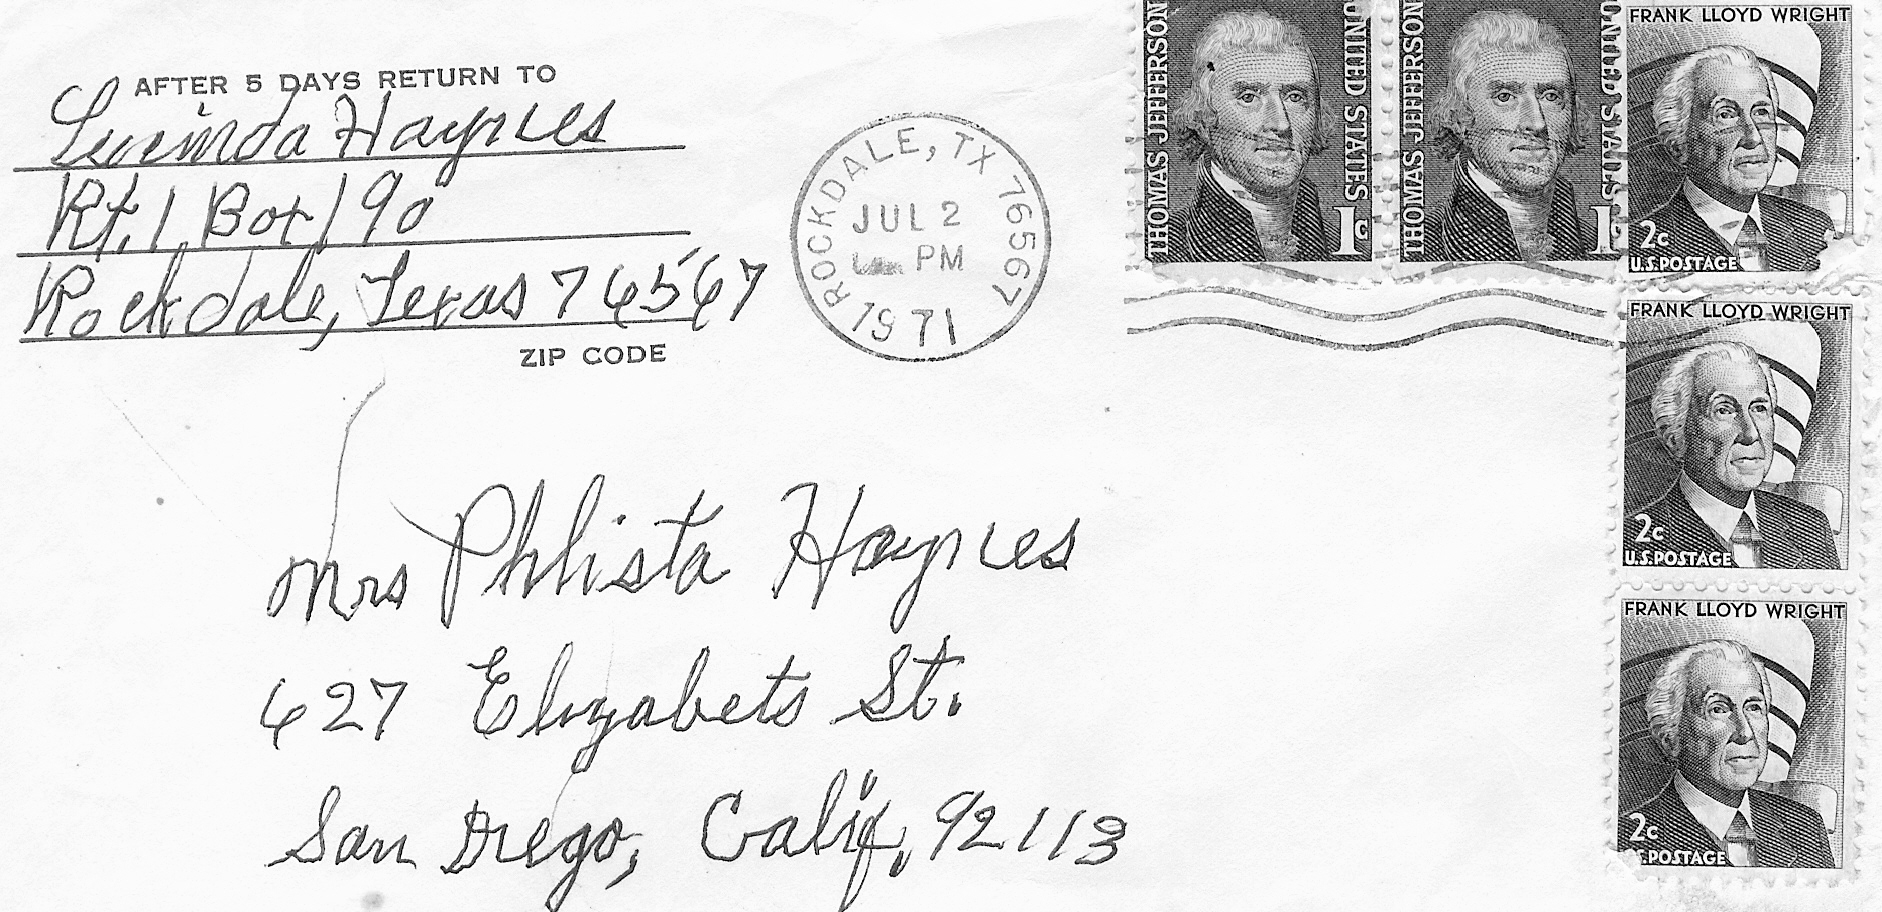 AFTER 5 DAYS RETURN TO
Lucinda Haynes
Rt. 1 Box 190
Rockdale, Texas 76567
ZIP CODE
ROCKDALE, TX 76567
JUL 2
PM
1971
THOMAS JEFFERSON
UNITED STATES
1c
THOMAS JEFFERSON
UNITED STATES
1c
FRANK LLOYD WRIGHT
2c
U.S. POSTAGE
FRANK LLOYD WRIGHT
2c
U.S. POSTAGE
FRANK LLOYD WRIGHT
2c
U.S. POSTAGE
Mrs Phlista Haynes
627 Elizabets St.
San Diego, Calif, 92113